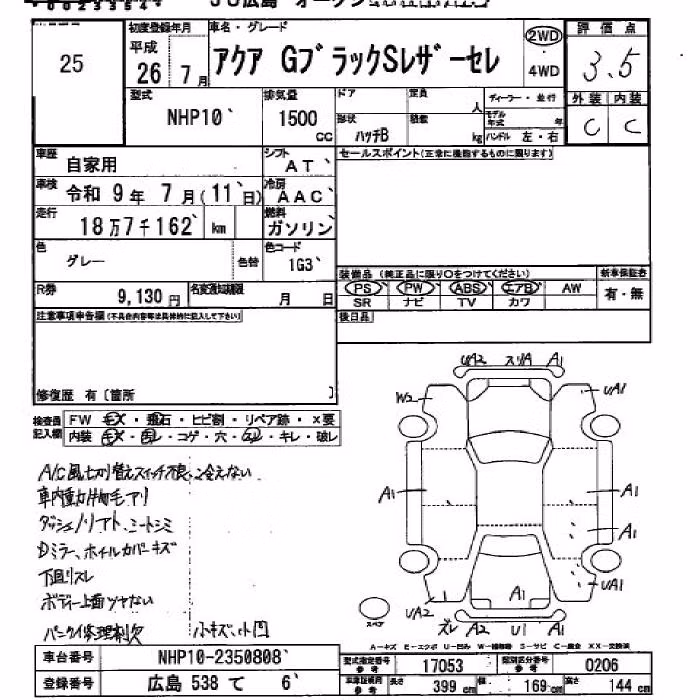 25
初度登録年月
平成
26 7月
車名・グレード
アクア GブラックSレザーセレ
2WD
・
4WD
評価点
3.5
外装 内装
C C
型式
NHP10
排気量
1500
cc
ドア
定員
人
形状
ハッチB
積載
kg
ディーラー・並行
モデル年式
年
ハンドル 左・右
車歴
自家用
シフト
AT
セールスポイント(正常に機能するものに限ります)
車検
令和 9年 7月(11日)
冷房
AAC
走行
18万7千162 km
燃料
ガソリン
色
グレー
色替
色コード
1G3
装備品(純正品に限り○をつけてください)
新車保証書
PS PW ABS エアB AW
有・無
SR ナビ TV カワ
R券
9,130円
名変通知期限
月 日
後日品
注意事項申告欄(不具合内容等は具体的に記入して下さい)
修復歴 有〔箇所 〕
検査員記入欄
FW キズ・飛石・ヒビ割・リペア跡・×要
内装 キズ・・コゲ・穴・スレ・キレ・破レ
A/C風切替えスイッチ不良、冷えない
車内動物毛アリ
ダッシュノリアト、シートシミ
Dミラー、ホイルカバーキズ
下回リスレ
ボディー上面ツヤない
小キズ、小凹
UA2 スリA A1
W2
UA1
A1
A1
A1
A1
UA1
UA2
スレ A2 U1 A1
スペア
A-キズ E-エクボ U-凹み W-補修跡 S-サビ C-腐食 XX-交換済
車台番号
NHP10-2350808
型式指定番号
参考
17053
類別区分番号
参考
0206
登録番号
広島 538 て 6
車検証専用
参考
長さ
399 cm
幅
169 cm
高さ
144 cm